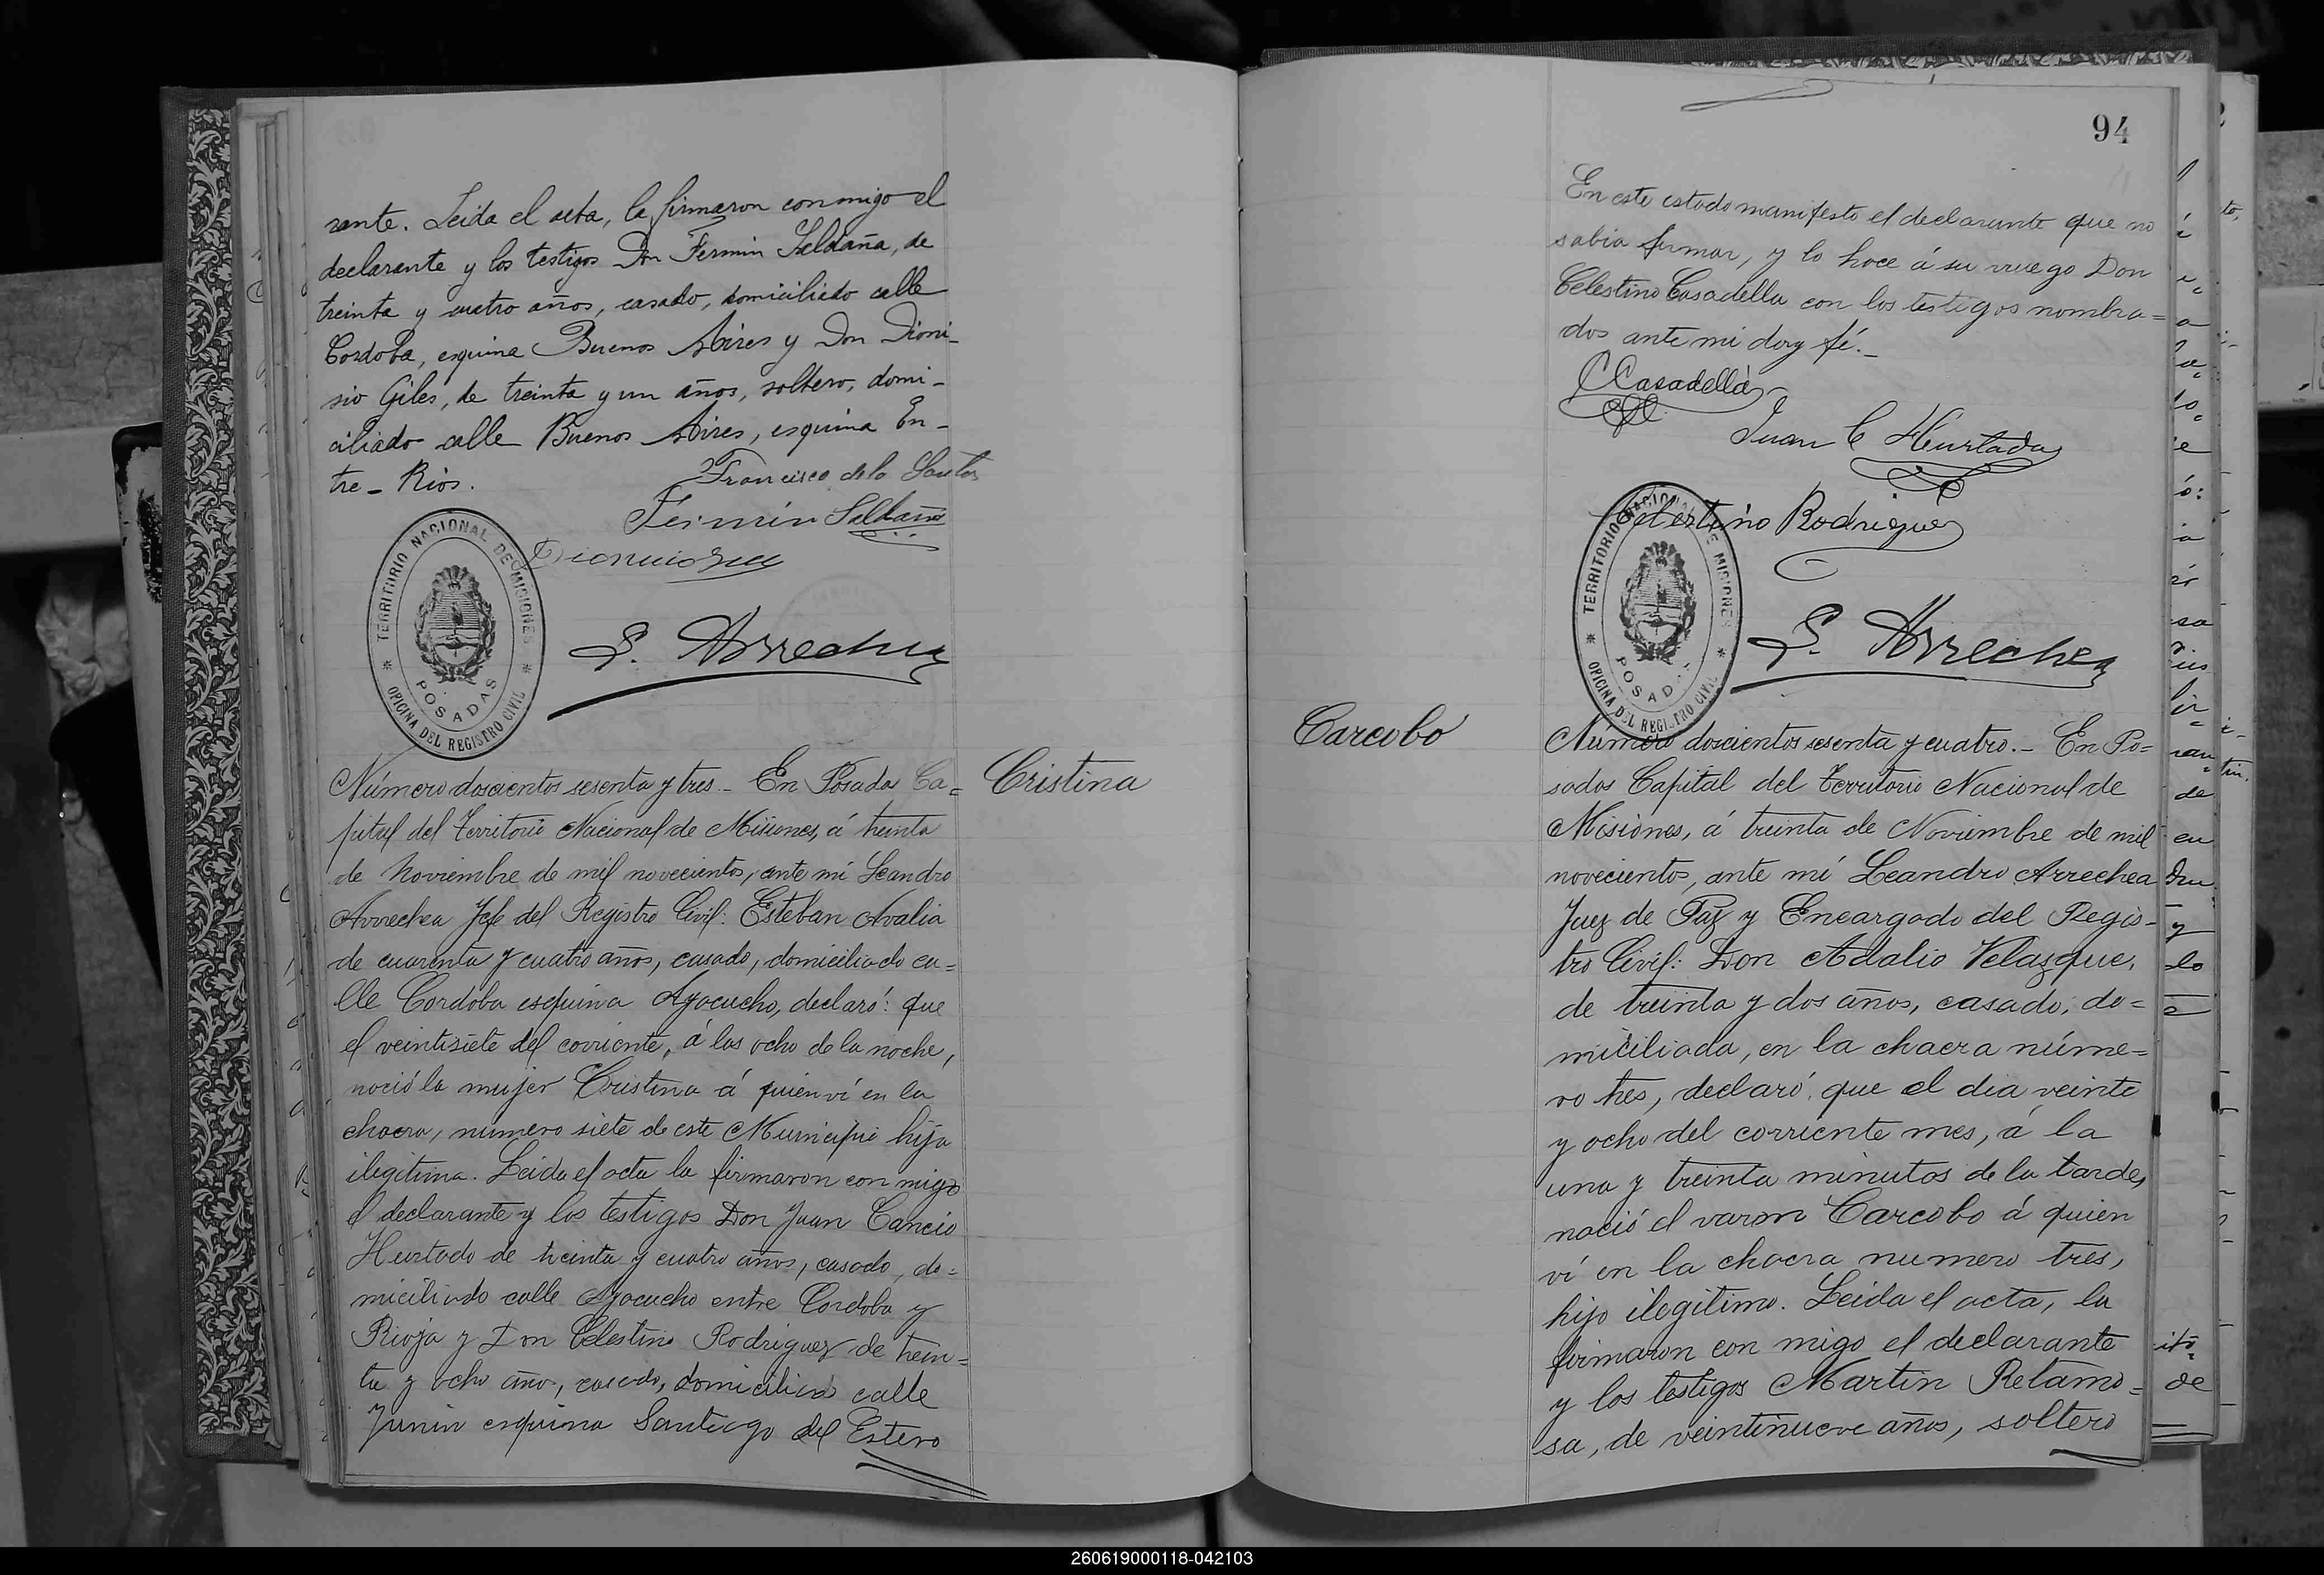 rante. Leida el acta, la firmaron conmigo el
declarante y los testigos Don Fermin Saldaña, de
treinta y cuatro años, casado, domiciliado calle
Cordoba, esquina Buenos Aires y Don Dioni-
sio Giles, de treinta y un años, soltero, domi-
ciliado calle Buenos Aires, esquina En-
tre-Rios.
Francisco de los Santos
Fermin Saldaña
TERRITORIO NACIONAL DE MISIONES
POSADAS
OFICINA DEL REGISTRO CIVIL
L. Arrechea
Número doscientos sesenta y tres.- En Posadas Ca=
pital del Territorio Nacional de Misiones, á treinta
de Noviembre de mil novecientos, ante mi Leandro
Arrechea Jefe del Registro Civil: Esteban Avalia
de cuarenta y cuatro años, casado, domiciliado ca=
lle Cordoba esquina Ayacucho, declaró: que
el veintisiete del corriente, á las ocho de la noche,
nació la mujer Cristina á quien ví en la
chacra, numero siete de este Municipio hija
ilegitima. Leida el acta la firmaron con migo
el declarante y los testigos Don Juan Cancio
Hurtado de treinta y cuatro años, casado, do=
miciliado calle Ayacucho entre Cordoba y
Rioja y Don Celestino Rodriguez de trein=
ta y ocho año, casado, domiciliado calle
Junin esquina Santiago del Estero
Cristina
94
En este estado manifesto el declarante que no
sabia firmar, y lo hace á su ruego Don
Celestino Casadella con los testigos nombra=
dos ante mi doy fé.-
C Casadella
Juan C Hurtado
Celestino Rodriguez
TERRITORIO NACIONAL DE MISIONES
POSADAS
OFICINA DEL REGISTRO CIVIL
L. Arrechea
Carcobo
Número doscientos sesenta y cuatro.- En Po=
sadas Capital del Territorio Nacional de
Misiones, á treinta de Noviembre de mil
novecientos, ante mí Leandro Arrechea
Juez de Paz y Encargado del Regis-
tro Civil: Don Adalio Velazque,
de treinta y dos años, casado, do=
miciliada, en la chacra núme=
ro tres, declaró, que el dia veinte
y ocho del corriente mes, á la
una y treinta minutos de la tarde,
nació el varon Carcobo á quien
ví en la chacra numero tres,
hijo ilegitimo. Leida el acta, la
firmaron con migo el declarante
y los testigos Martin Retamo=
sa, de veintinueve años, soltero
260619000118-042103